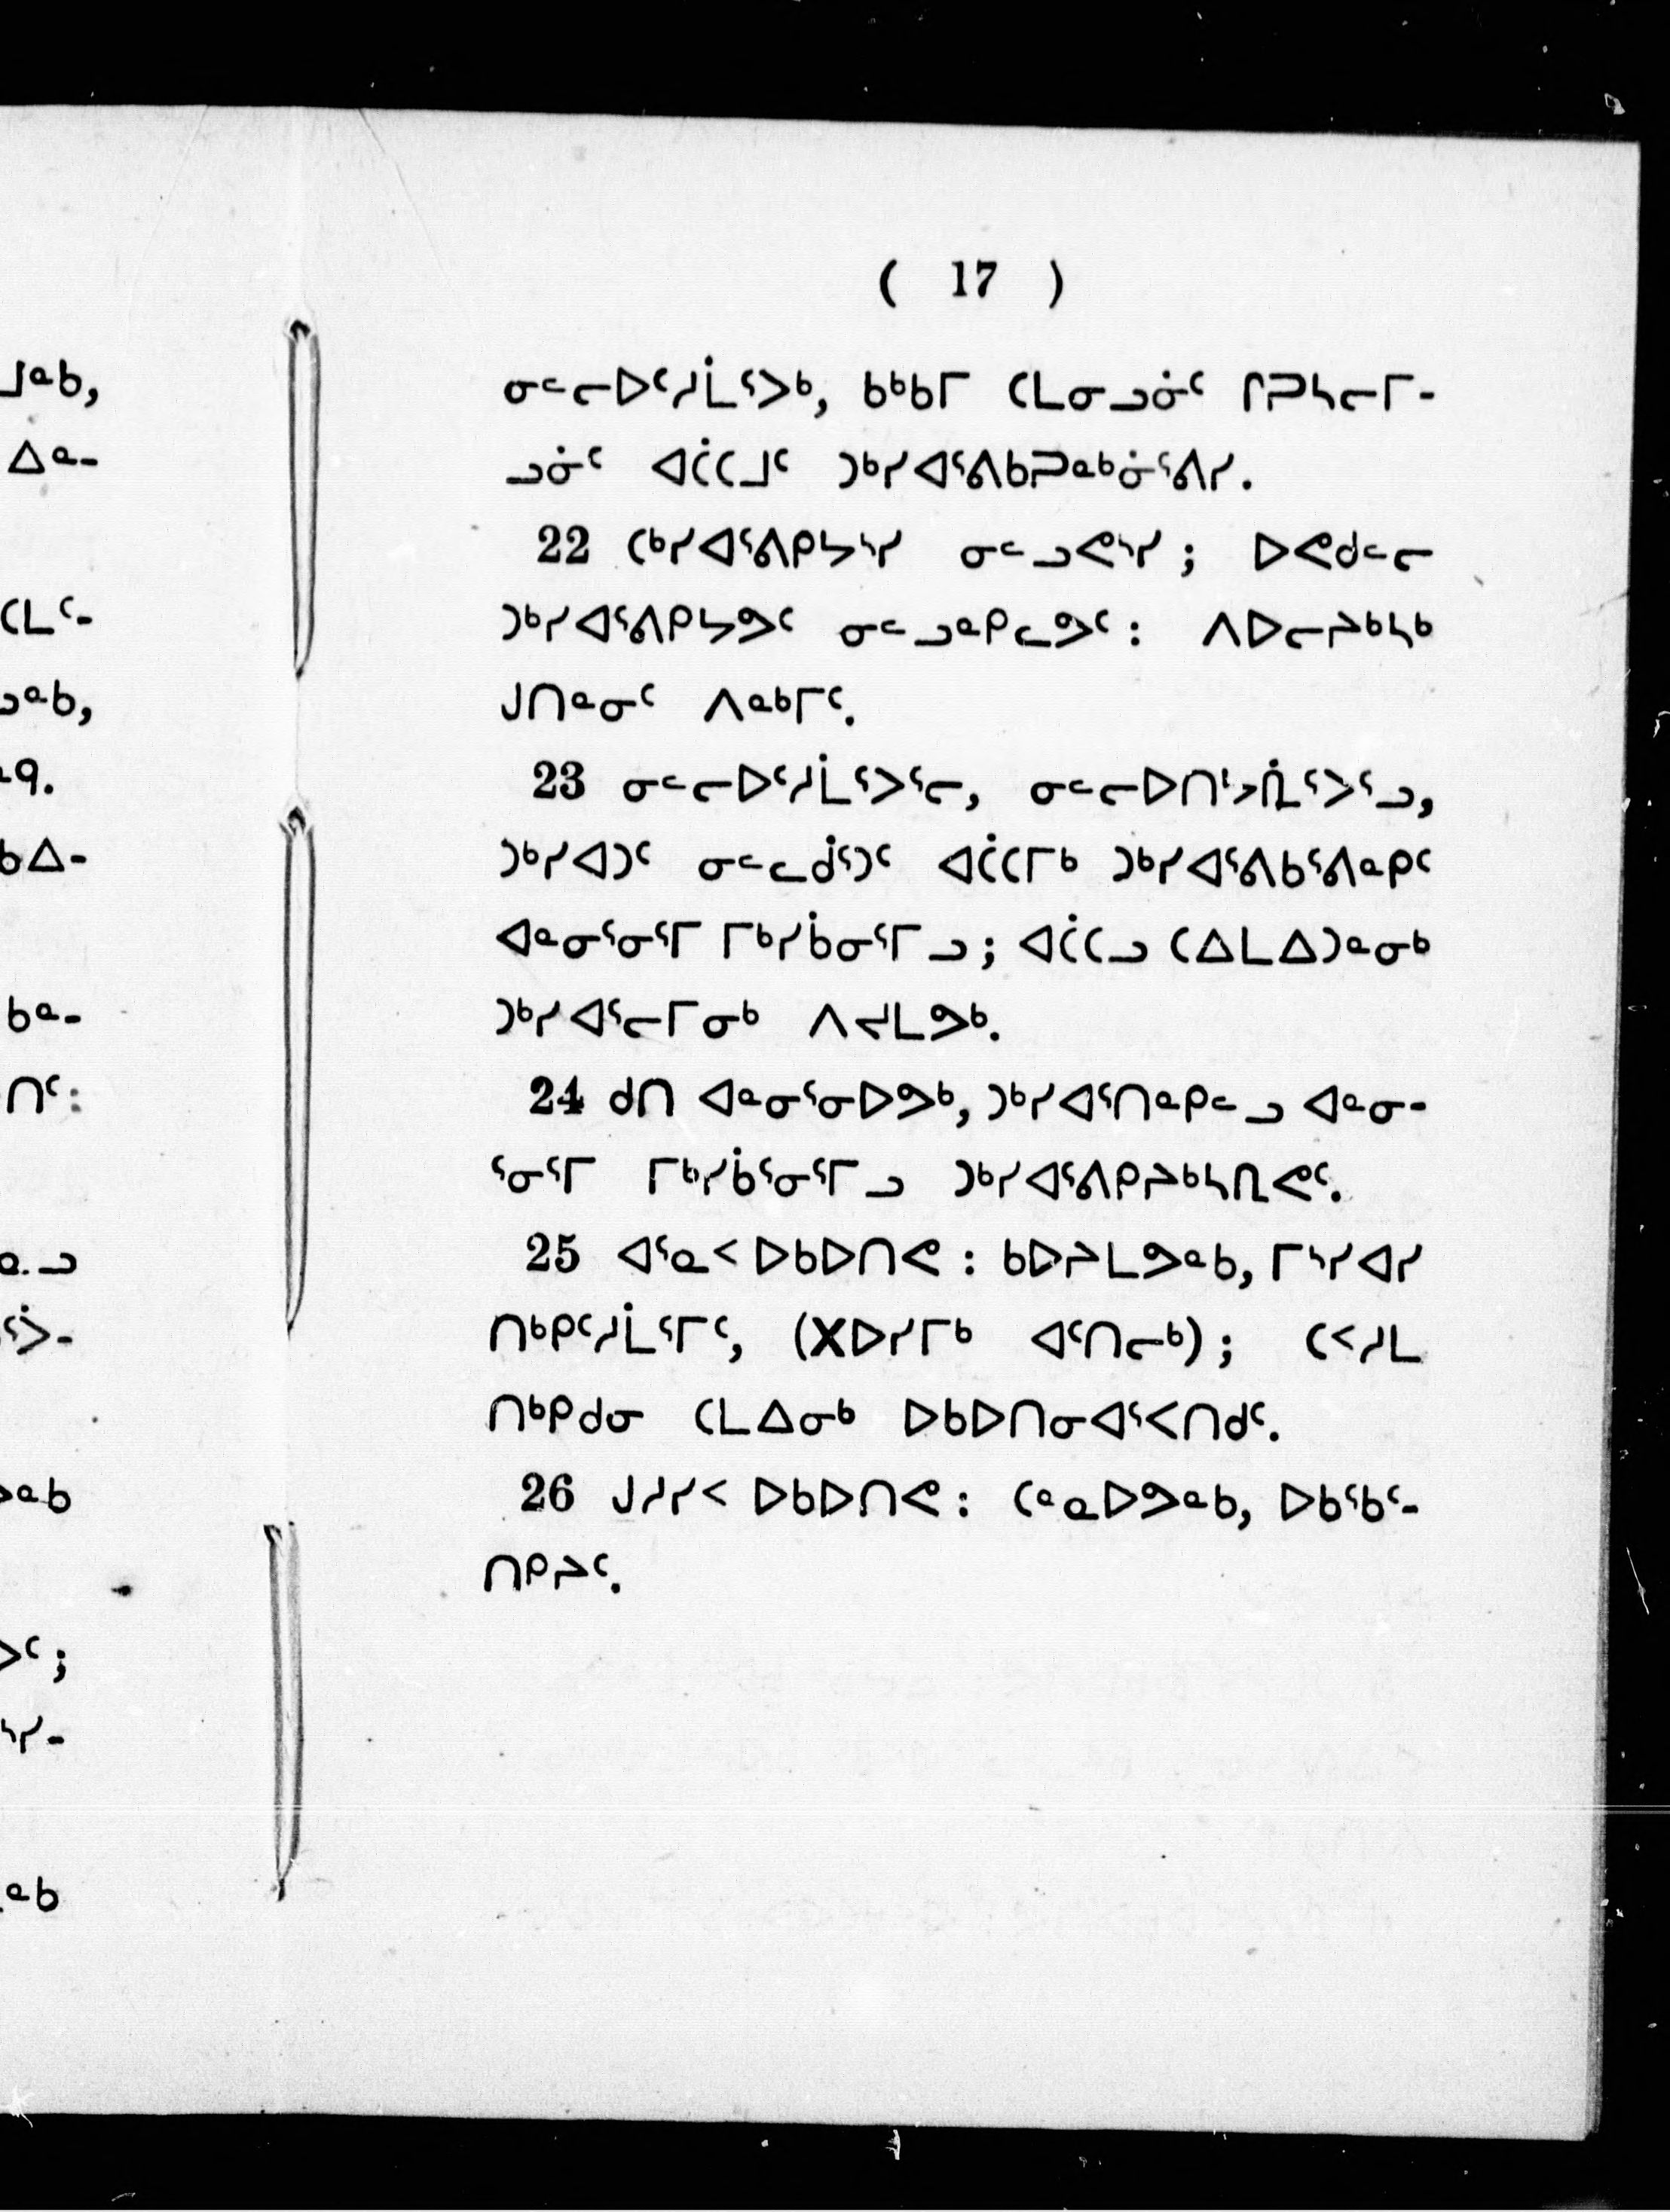 ( 17 )
ᓂᓪᓕᐅᑦᓱᒫᕐᐳᒃ, ᑲᒃᑲᒥ ᑕᒪᓂᓗᓃᑦ ᒋᕈᓴᓕᒥ-
ᓗᓃᑦ ᐊᑖᑕᒧᑦ ᑐᒃᓯᐊᕐᕕᑲᕈᓐᓇᒃᓃᕐᕕᓯ.
22 ᑕᒃᓯᐊᕐᕕᑭᔭᔅᓯ ᓂᓪᓗᕙᔅᓯ ; ᐅᕙᑯᓪᓕ
ᑐᒃᓯᐊᕐᕕᑭᔭᕗᑦ ᓂᓪᓗᓐᑭᓚᕗᑦ : ᐱᐅᓕᔨᒃᓴᒃ
ᒍᑎᓐᓂᑦ ᐱᓐᑲᒥᑦ.
23 ᓂᓪᓕᐅᑦᓱᒫᕐᐳᕐᓕ, ᓂᓪᓕᐅᑎᒫᕐᐳᕐᓗ,
ᑐᒃᓯᐊᑐᑦ ᓂᓪᓚᑰᕐᑐᑦ ᐊᑖᑕᒥᒃ ᑐᒃᓯᐊᕐᕕᑲᕐᕕᓐᑭᑦ
ᐊᓐᓂᕐᓂᕐᒥ ᒥᒃᓯᑳᓂᕐᒥᓗ ; ᐊᑖᑕᓗ ᑕᐃᒪᐃᑐᓐᓂᒃ
ᑐᒃᓯᐊᕐᓕᒥᓂᒃ ᐱᔪᒪᕗᒃ.
24 ᑯᑎ ᐊᓐᓂᕐᓂᐅᕗᒃ, ᑐᒃᓯᐊᕐᑎᓐᑭᓪᓗ ᐊᓐᓂ-
ᕐᓂᕐᒥ ᒥᒃᓯᑳᕐᓂᕐᒥᓗ ᑐᒃᓯᐊᕐᕕᑭᔨᒃᓴᕆᕙᑦ.
25 ᐊᕐᓇᑉ ᐅᑲᐅᑎᕙ : ᑲᐅᔨᒪᕗᓐᑲ, ᒥᔅᓯᐊᓯ
ᑎᒃᑭᑦᓱᒫᕐᒥᑦ, (Xᐅᓯᒥᒃ ᐊᑦᑎᓕᒃ) ; ᑕᑉᓱᒪ
ᑎᒃᑭᑯᓂ ᑕᒪᐃᓂᒃ ᐅᑲᐅᑎᓂᐊᕐᐸᑎᑯᑦ.
26 ᒍᓱᓯᑉ ᐅᑲᐅᑎᕙ : ᑕᓐᓇᐅᕗᓐᑲ, ᐅᑲᕐᑲᑦ-
ᑎᑭᔨᑦ.